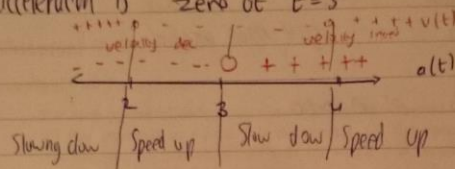 acceleration is zero at t=3
+ + + + + - - - - + + + + v(t)
velocity dec velocity incre
- - - - - 0 + + + + + a(t)
2 3 4
Slowing dow Speed up Slow dow Speed up